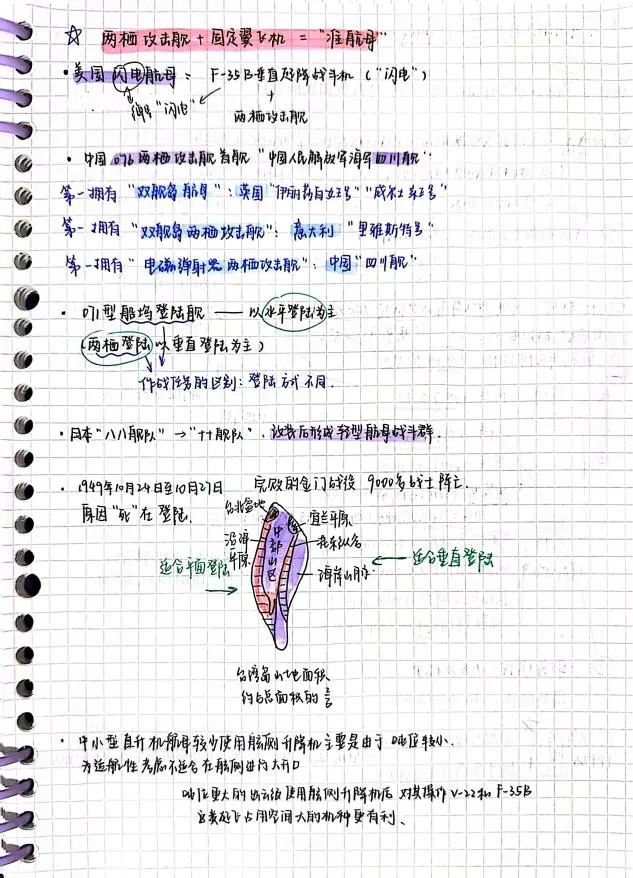 ☆ 两栖攻击舰 + 固定翼飞机 = "准航母"
· 美国 闪电航母 = F-35B垂直起降战斗机 ("闪电")
绰号"闪电"
+
两栖攻击舰
· 中国 076 两栖攻击舰首舰 "中国人民解放军海军四川舰"
第一拥有 "双舰岛航母": 英国 "伊丽莎白女王号" "威尔士亲王号"
第一拥有 "双舰岛两栖攻击舰": 意大利 "里雅斯特号"
第一拥有 "电磁弹射器 两栖攻击舰": 中国 "四川舰"
· 071型船坞登陆舰 —— 以水平登陆为主
(两栖登陆以垂直登陆为主)
作战任务的区别: 登陆方式不同.
· 日本 "八八舰队" → "十十舰队". 改装后形成轻型航母战斗群.
· 1949年10月24日至10月27日 完败的金门战役 9000多战士阵亡.
原因 "死" 在 登陆.
台北盆地
宜兰平原
沿海平原
中部山区
花东纵谷
海岸山脉
适合平面登陆 →
← 适合垂直登陆
台湾岛山地面积
约占总面积的 2/3
· 中小型直升机航母较少使用舷侧升降机主要是由于 吨位较小.
为适航性考虑不适合在舷侧进行大开口
吨位更大的出云级使用舷侧升降机后 对其操作 V-22和 F-35B
这类起飞占用空间大的机种更有利.